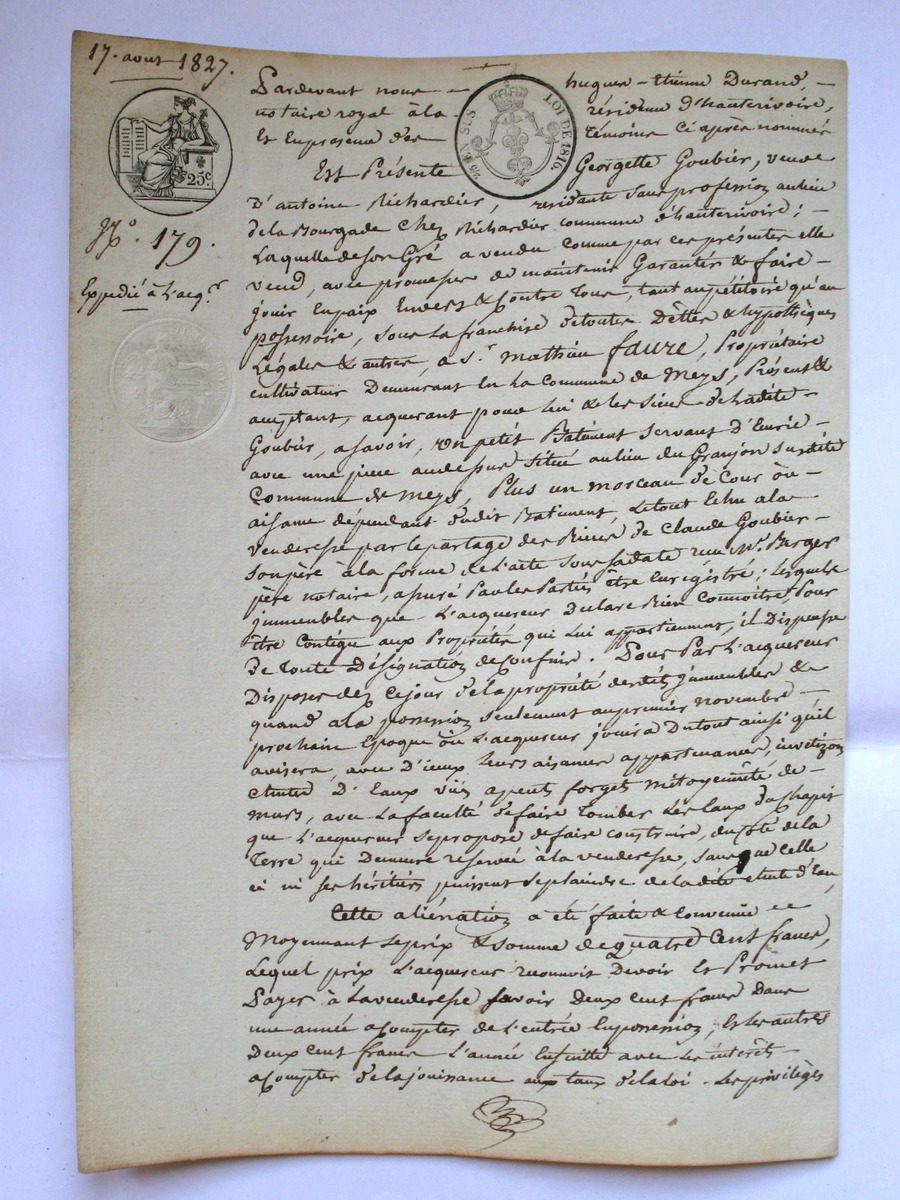 17. aout 1827.
25 c
EN SUS
LOI DE 1816.
N.º 179.
Expedié à l'acq.r
Pardevant nous hugues-Etienne Durand, -
notaire royal à la résidence d'hauterivoire,
Et En presence des témoins ci après nommés
Est Présente Georgette Goubier, veuve
D'antoine Richardier, résidante sans profession au lieu
de la Bourgade chez Richardier commune d'hauterivoire ; -
Laquelle de son Gré a vendu comme par ces présentes elle
vend, avec promesse de maintenir Garantir & faire -
jouir En paix Envers & Contre Tous, tant au pétitoire qu'au
possessoire, sous la franchise de toutes Dettes & hypothèques
Légales & autres, a S.r mathieu faure, Propriétaire
cultivateur Demeurant En La Commune de Meys, Présent &
acceptant, acquerant pour lui & les siens de ladite -
Goubier, a savoir, un petit Batiment servant d'Ecurie -
avec une piece au dessus situé au lieu du Granjon susdite
Commune de meys, Plus un morceau de Cour ou -
aisance dépendant dudit Batiment, Le tout Echu a la
venderesse par le partage des Biens de Claude Goubier -
son père à la forme de L'acte sous sa date reçu M.e Berger
père notaire, assuré Par les Parties être Enregistré ; Lesquels
jmmeubles que L'acquereur Declare Bien Connoitre Pour
être Contigu aux Propriétés qui Lui appartiennent, il Dispense
de Toute Désignation de Confins. Pour Par L'acquereur
Disposer dez ce jour de la propriété desdits jmmeubles &
quand a la possession seulement au premier novembre -
prochain Epoque où L'acquereur jouira Du tout ainsi qu'il
avisera, avec D'iceux leurs aisances appartenances, invétizons
chutes D'Eaux vües agouts forgets mitoyenneté de -
murs, avec La faculté de faire Tomber Les Eaux du Chapit
que L'acquereur se propose de faire construire, du côté de la
Terre qui Demeure réservée à la venderesse, sans que celle
ci ni ses héritiers puissent se plaindre de la dite chute d'Eau
Cette aliénation a été faite & Convenüe
Moyennant le prix & somme de quatre Cent francs,
Lequel prix L'acquereur reconnoit Devoir Et Promet
Payer à La venderesse savoir Deux cent francs Dans
une année a Compter de L'entrée En possession, & les autres
Deux Cent francs L'année Ensuitte avec Les interêts
a Compter de la jouissance aux taux de la Loi. Les privilèges